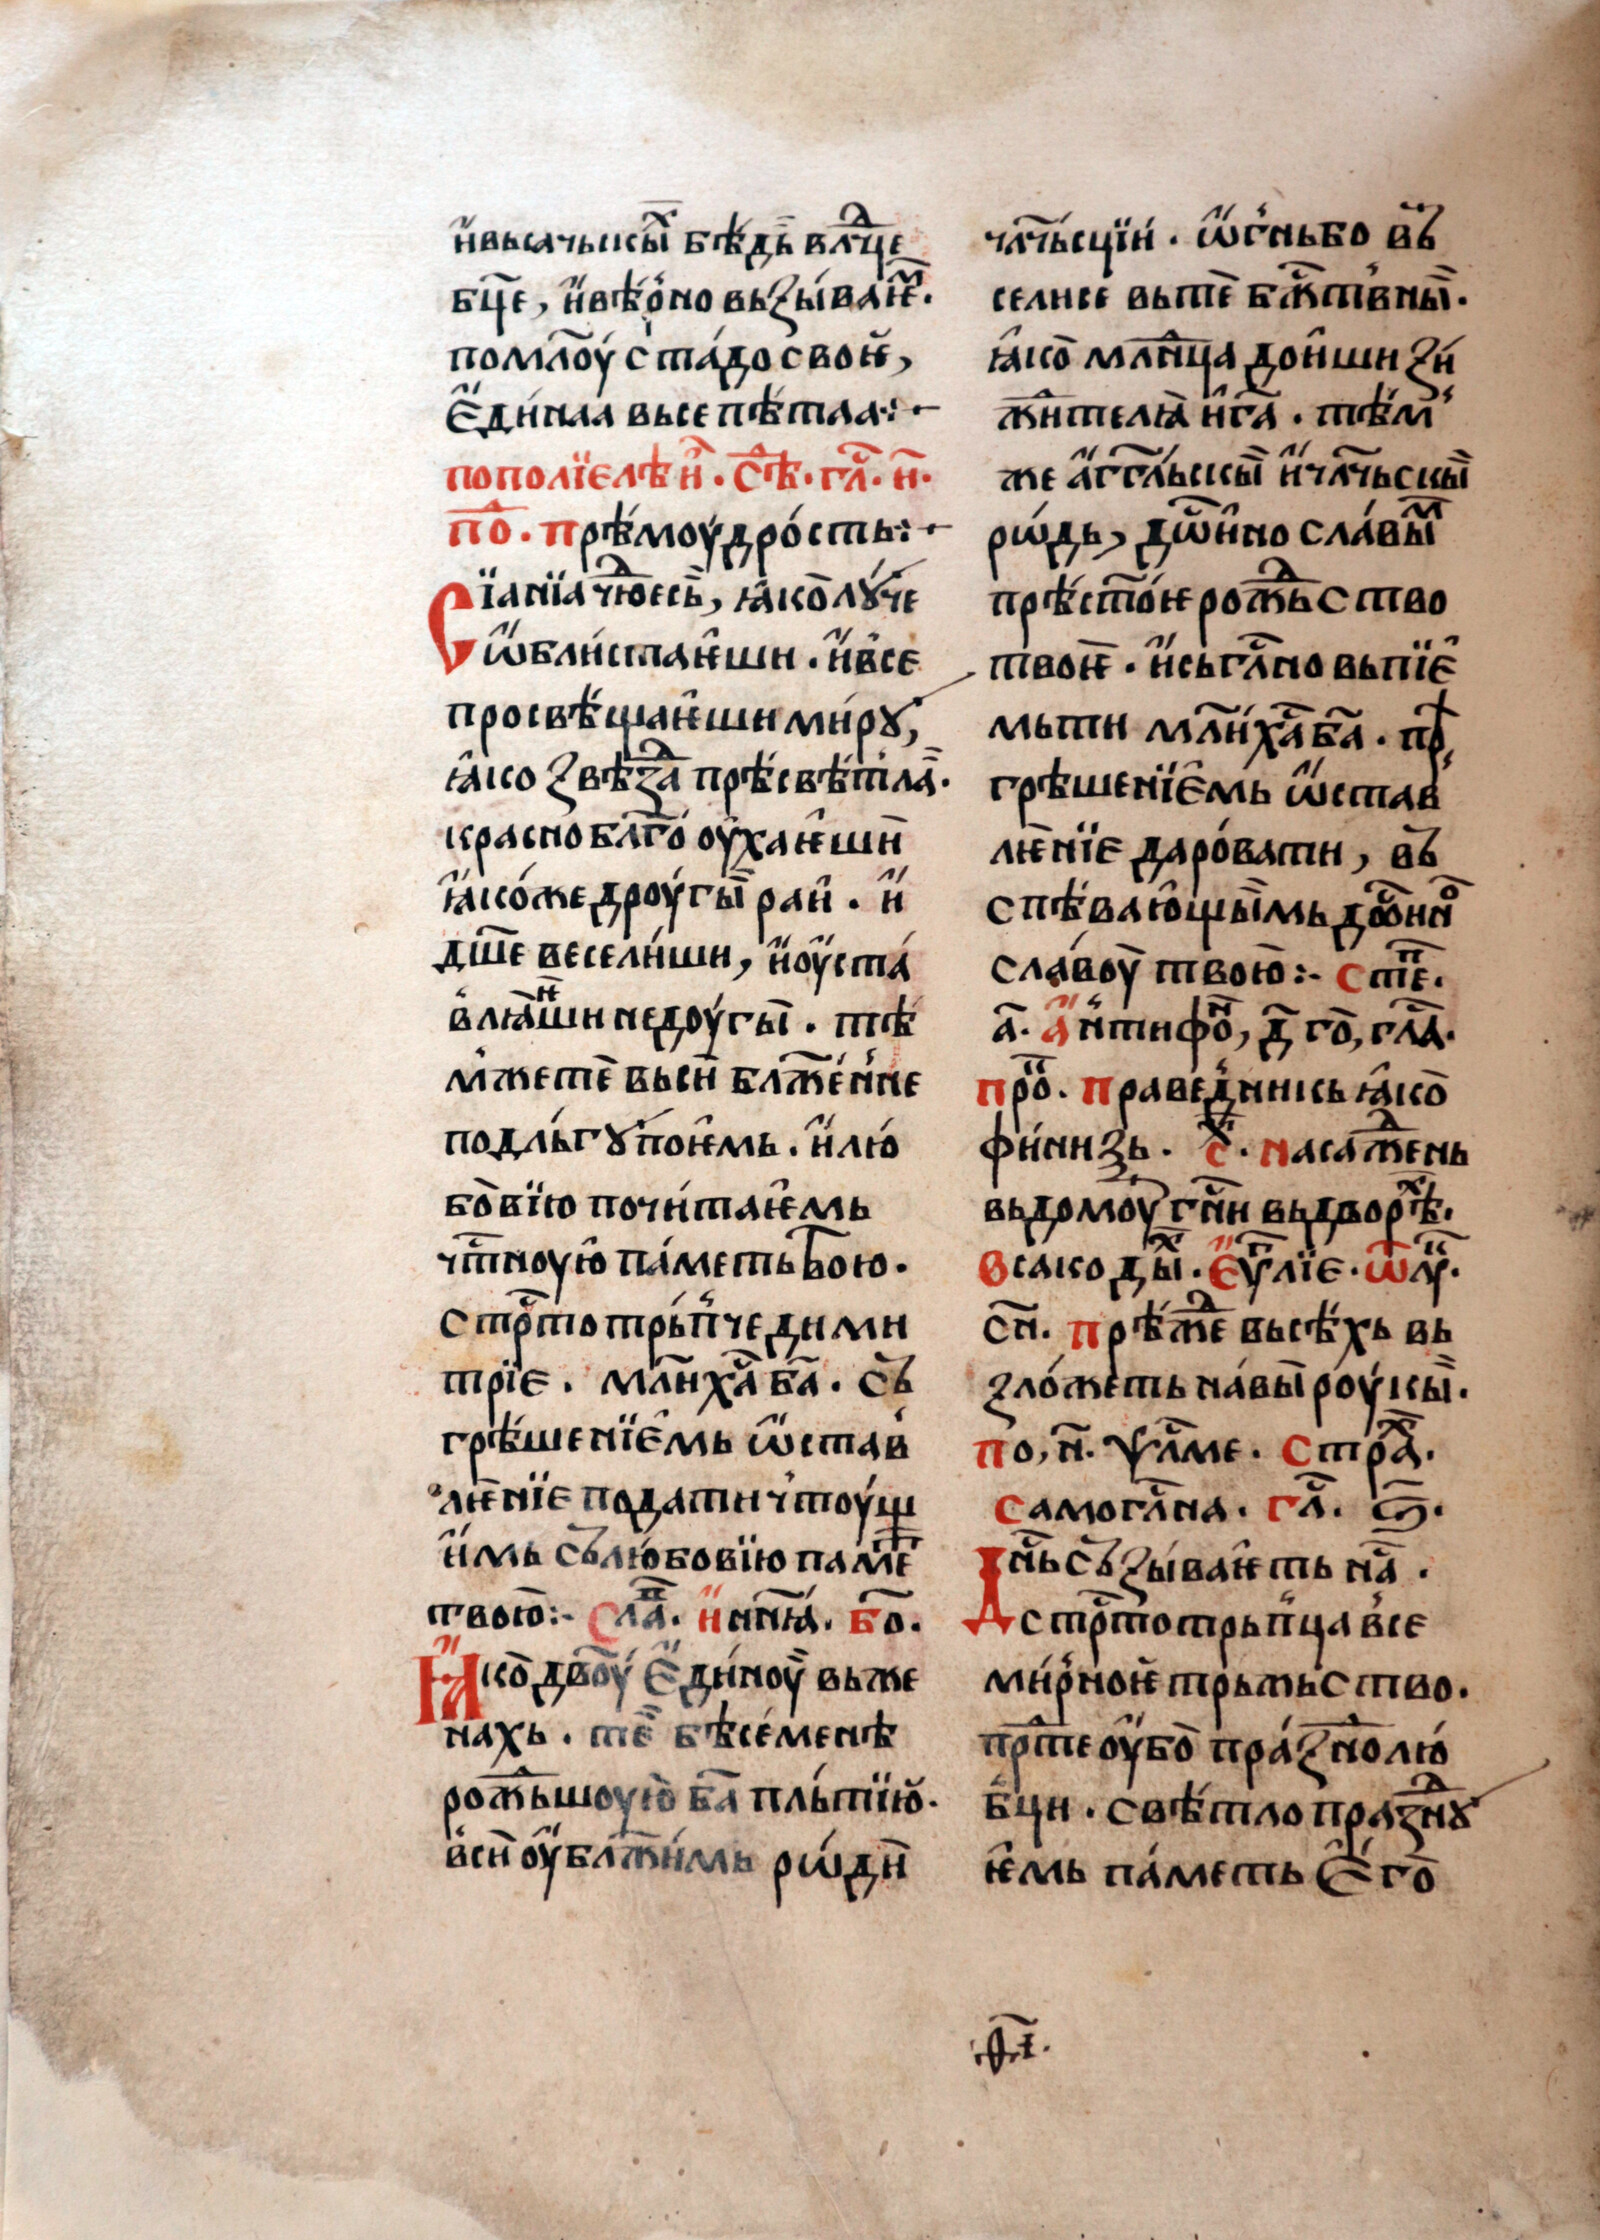 и҆вьсачьскы̑ⷯ бѣ́дь влⷣч҃це
бц҃е, и҆вѣ́рно вьзы́ваѥⷨ.
помл҃оу́ ста́до своѥ̀,
Е҆ди́наа вьсепѣ́таа:·
пополїелѣѝ. сѣⷣ. гл҃. и҃.
поⷣ. прѣ́моу́дрость:·
Сїанїа чю҃десь, ꙗ҆коло́уче
ѡ҆бли́стаѥши. и҆в̾се
просвѣ́щаѥши ми́рꙋ,
ꙗ҆ко ꙃвѣ́здⷣа прѣ́свѣ́тла.
красно бл҃го оу҆́хаѥшѝ
ꙗ҆́коже дроу́гы раи̑. и҆
дш҃е весели́ши, и҆оу҆ста́
влꙗѥши недоу́гы. тѣ́
м̾жетѐ вьсѝ блаж҃е́н̾не
подль́гꙋ поѥ̑мь. и҆лю́
бо́вїю почи́таѥмь
чⷭ҇тноую̑ па́меть твою.
стрⷭ҇тотрь́п̾че дими
трїе. мл҃и хⷭ҇а б҃а. съ
грѣ́шенїе̑мь ѡ҆став̾
лѥ́нїе подати чтоу́щ
и҆мь съ любовїю памеⷮ
твою:- Слаⷡ. и҆нн҃ꙗ. бо҃.
Ꙗ҆ко дв҃оу́ е҆ди́ноу вьже
нахь. те бѣсе́менѣ
рожⷣьшоую̑ б҃а пль́тїю̀.
в̾сѝ оу҆блаж҃и́мь рѡ́дѝ
члч҃ьсцїи. ѡ҆гньбо въ
селисе вьтѐ бжⷭ҇тв̾ны.
ꙗ҆ко мл҃нца доѝши ꙃи
жи́телꙗ̀ и҆га҃. тѣ́м̾
же а҆гг҃льскы и҆члч҃ьскы
рѡ́дь, дⷭ҇ѡино сла́вы̑ⷨ
прѣ́ст҃оѥ рожⷣьство
твоѥ̀. и҆сьгл҃но вьпїе̑
мьти мл҃и хⷭ҇а б҃а. прⷺ
грѣшенїе̑мь ѡ҆став
лѥ́нїе даро́вати, въ
спѣ́ваю̑щымь дⷭ҇ѡи́нѡ
сла́воу̀ твою̀:- Стеⷫ.
а҃. а҆н̾тифоⷩ, д҃ го, гла҃.
Проⷦ. Праве́д̾никь ꙗ҆ко
фи́ниꙃь. сⷯ. насажⷣень
вьдомоу́ гн҃и вьдворѣⷯ.
Всако дыⷯ. е҆уⷢ҇лїе. ѿ лꙋⷦ.
сн҃. прѣ́жⷣе вьсѣ́хь вь
ꙃло́жеть на́вы роу́кы.
По, н҃. ѱл҃ме. Стрⷯа.
Самогл҃на. гл҃. ѕ҃.
Дн҃ь съꙃы́ваѥть наⷭ.
стрⷭ҇тотрьп̾ца в̾се
ми́р̾ноѥ трьжьство.
прⷣте оу҆бо праꙃнⷣолю́
б̾ци. свѣ́тло праꙃнⷣꙋ
ѥмь па́меть е҆го̀
.ф҃і.